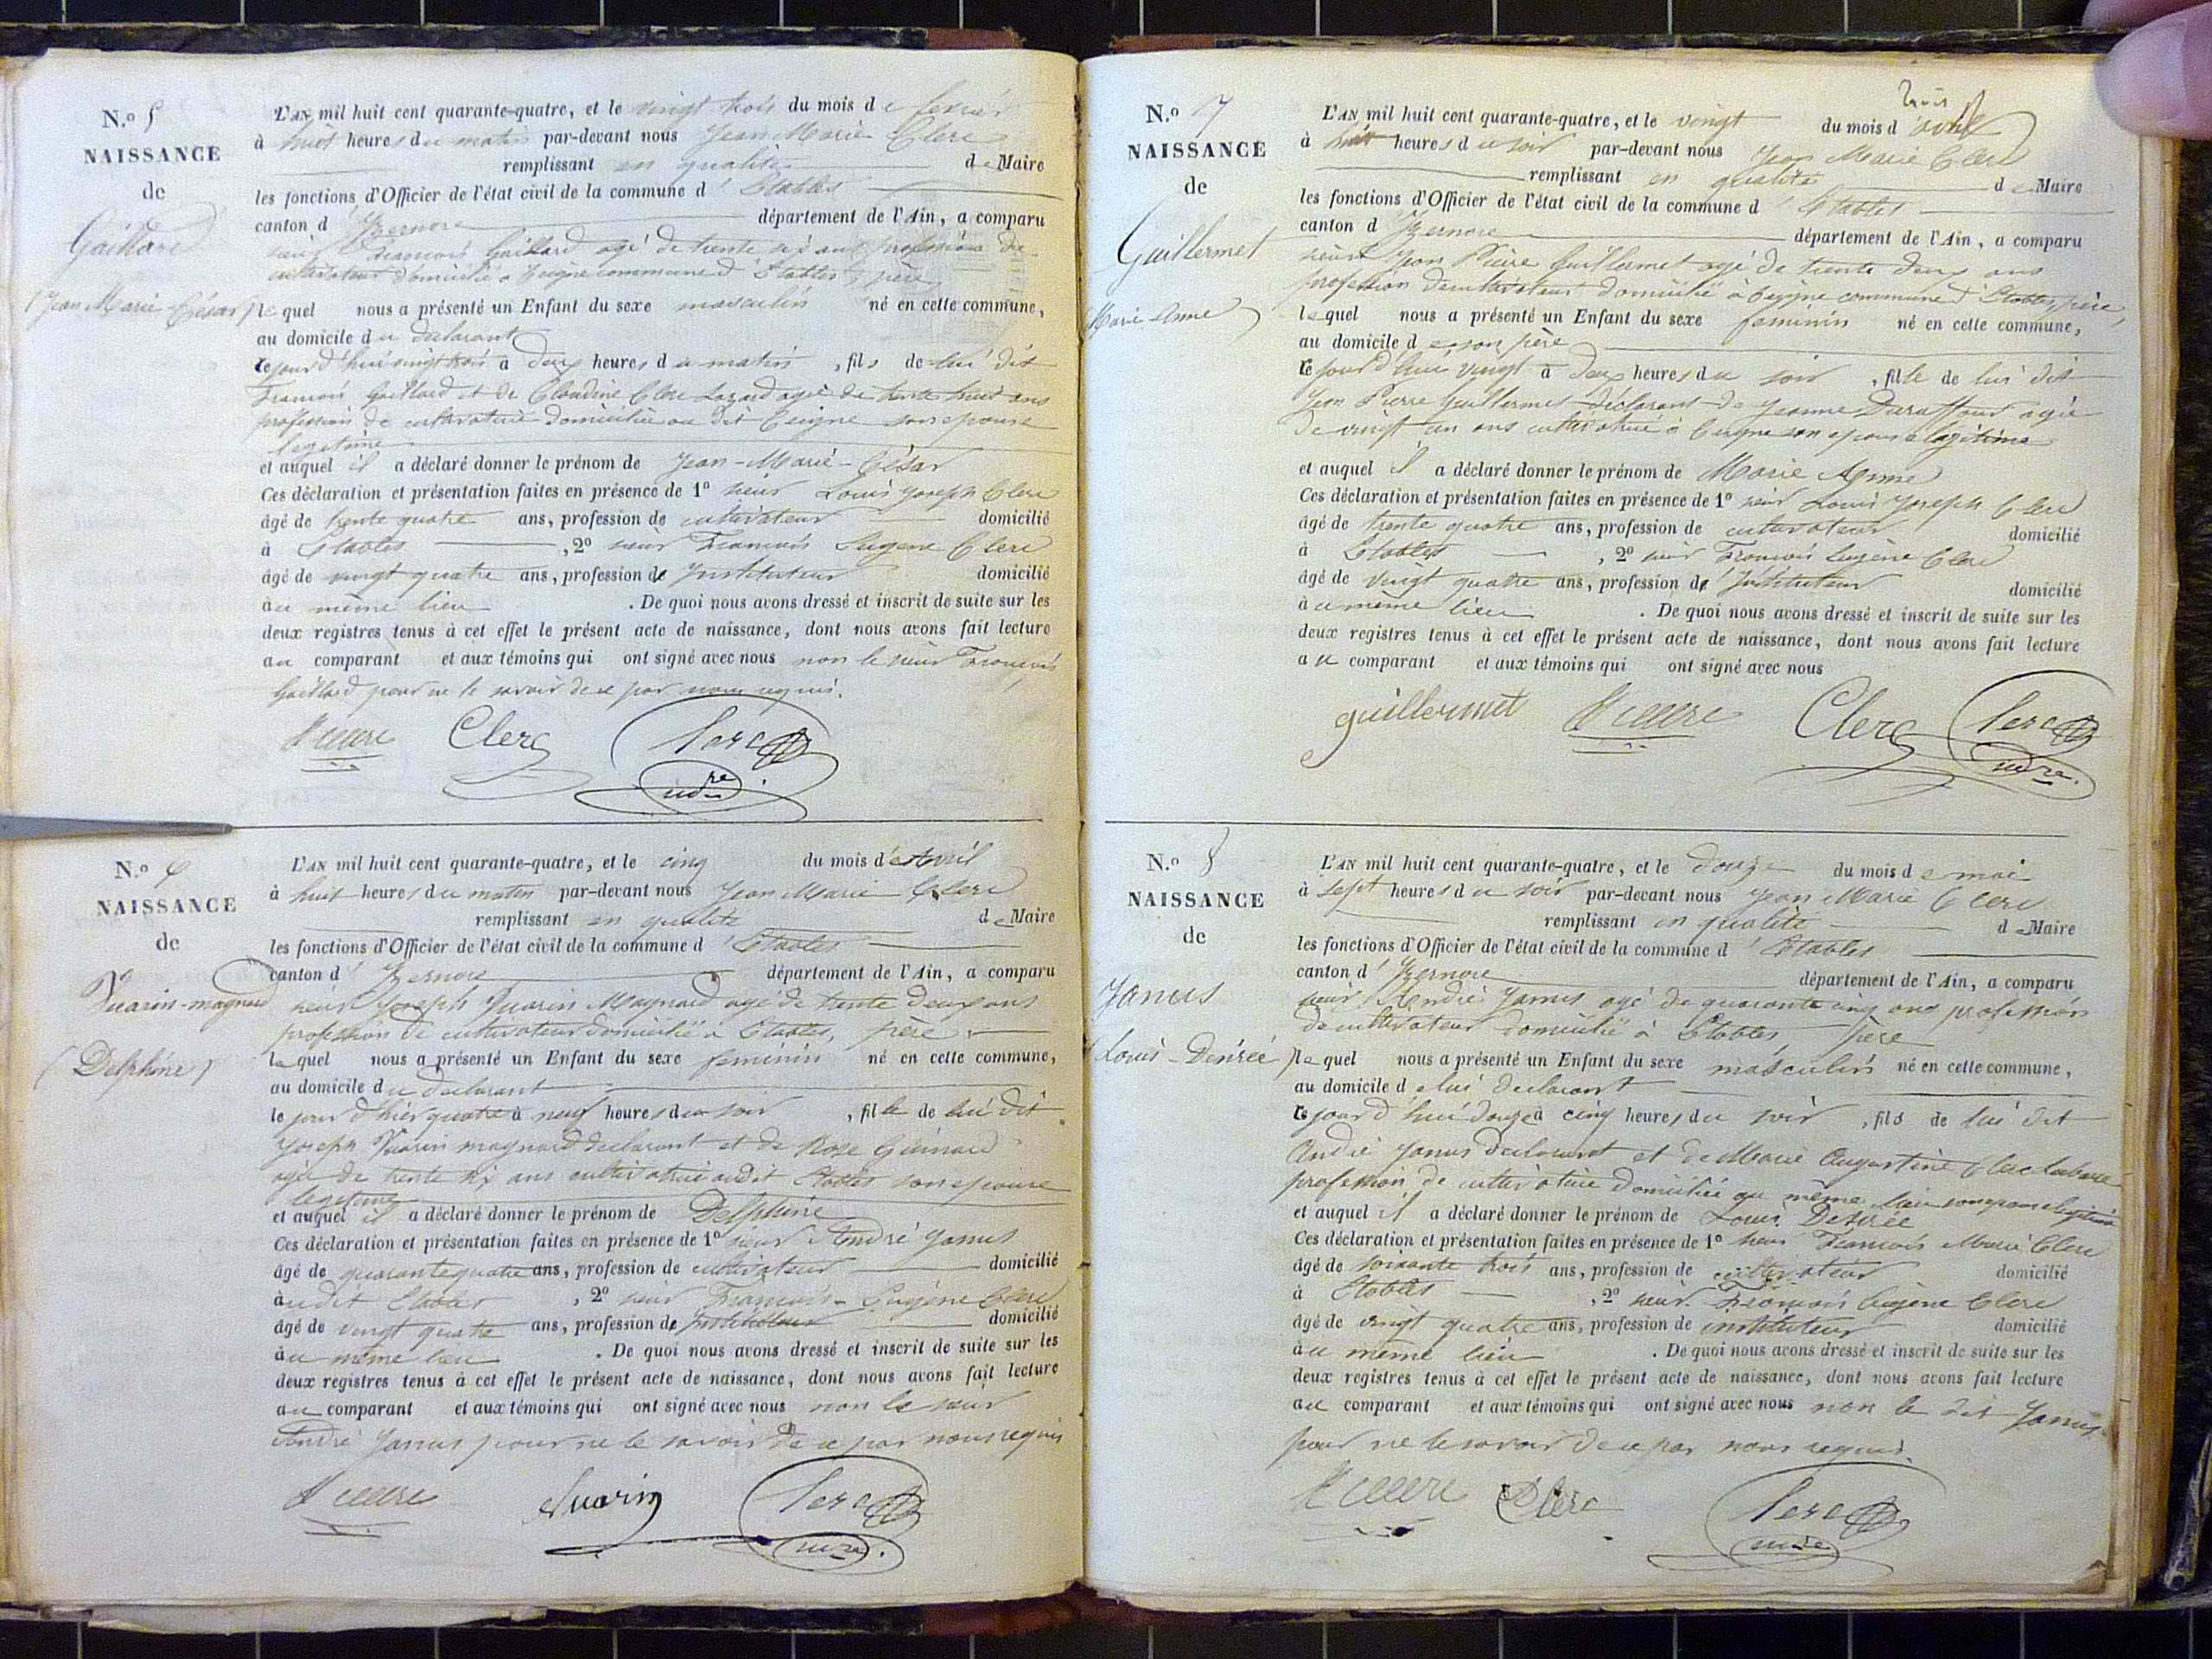 N.º 5
NAISSANCE
de
Gaillard
(Jean Marie-César)
L'AN mil huit cent quarante-quatre, et le vingt trois du mois de fevrier
à huit heures du matin par-devant nous Jean Marie Clerc
remplissant en qualité de Maire
les fonctions d'Officier de l'état civil de la commune d'Etables
canton d'Izernore département de l'Ain, a comparu
sieur François Gaillard agé de trente six ans profession de
cultivateur domicilié à Ceigne commune d'Etables, père
lequel nous a présenté un Enfant du sexe masculin né en cette commune,
au domicile du declarant
cejourd'hui vingt trois à deux heures du matin, fils de lui dit
François Gaillard et de Claudine Clerc agée de trente huit ans
profession de cultivatrice domiciliée au dit Ceigne son epouse
legitime
et auquel il a déclaré donner le prénom de Jean-Marie-César
Ces déclaration et présentation faites en présence de 1º sieur Louis Joseph Clerc
âgé de trente quatre ans, profession de cultivateur domicilié
à Etables, 2º sieur François Eugene Clerc
âgé de vingt quatre ans, profession de Instituteur domicilié
au même lieu. De quoi nous avons dressé et inscrit de suite sur les
deux registres tenus à cet effet le présent acte de naissance, dont nous avons fait lecture
au comparant et aux témoins qui ont signé avec nous non le sieur François
Gaillard pour ne le savoir de ce par nous requis.
Clerc Clerc
mre
N.º 6
NAISSANCE
de
Vuarin-magnard
(Delphine)
L'AN mil huit cent quarante-quatre, et le cinq du mois d'Avril
à huit heures du matin par-devant nous Jean Marie Clerc
remplissant en qualité de Maire
les fonctions d'Officier de l'état civil de la commune d'Etables
canton d'Izernore département de l'Ain, a comparu
sieur Joseph Vuarin Magnard agé de trente deux ans
profession de cultivateur domicilié à Etables, père
lequel nous a présenté un Enfant du sexe feminin né en cette commune,
au domicile du declarant
le jour d'hier quatre à neuf heures du soir, fille de lui dit
Joseph Vuarin magnard declarant et de Rose Guinard
agée de trente six ans cultivatrice audit Etables son epouse
legitime
et auquel il a déclaré donner le prénom de Delphine
Ces déclaration et présentation faites en présence de 1º sieur André Janus
âgé de quarante quatre ans, profession de cultivateur domicilié
audit Etables, 2º sieur François-Eugène Clerc
âgé de vingt quatre ans, profession de Instituteur domicilié
au même lieu. De quoi nous avons dressé et inscrit de suite sur les
deux registres tenus à cet effet le présent acte de naissance, dont nous avons fait lecture
au comparant et aux témoins qui ont signé avec nous non le sieur
André Janus pour ne le savoir de ce par nous requis
Vuarin Clerc
mre.
N.º 7
NAISSANCE
de
Guillermet
(Marie-Anne)
trois
L'AN mil huit cent quarante-quatre, et le vingt du mois d'avril
à huit heures du soir par-devant nous Jean Marie Clerc
remplissant en qualité de Maire
les fonctions d'Officier de l'état civil de la commune d'Etables
canton d'Izernore département de l'Ain, a comparu
sieur Jean Pierre Guillermet agé de trente deux ans
profession de cultivateur domicilié à Ceigne commune d'Etables, père,
lequel nous a présenté un Enfant du sexe feminin né en cette commune,
au domicile de son père
cejourd'hui vingt à deux heures du soir, fille de lui dit
Jean Pierre Guillermet declarant de Jeanne Duraffour agée
de vingt un ans cultivatrice à Ceigne son epouse legitime
et auquel il a déclaré donner le prénom de Marie Anne
Ces déclaration et présentation faites en présence de 1º sieur Louis Joseph Clerc
âgé de trente quatre ans, profession de cultivateur domicilié
à Etables, 2º sieur François Eugène Clerc
âgé de vingt quatre ans, profession de Instituteur domicilié
au même lieu. De quoi nous avons dressé et inscrit de suite sur les
deux registres tenus à cet effet le présent acte de naissance, dont nous avons fait lecture
au comparant et aux témoins qui ont signé avec nous
guillermet Clerc Clerc
mre.
N.º 8
NAISSANCE
de
Janus
(Louis-Desirée)
L'AN mil huit cent quarante-quatre, et le douze du mois de mai
à sept heures du soir par-devant nous Jean Marie Clerc
remplissant en qualité de Maire
les fonctions d'Officier de l'état civil de la commune d'Etables
canton d'Izernore département de l'Ain, a comparu
sieur André Janus agé de quarante cinq ans profession
de cultivateur domicilié à Etables, père
lequel nous a présenté un Enfant du sexe masculin né en cette commune,
au domicile de lui declarant
cejourd'hui douze à cinq heures du soir, fils de lui dit
André Janus declarant et de Marie Augustine Clerc
profession de cultivatrice domiciliée au même lieu son epouse legitime
et auquel il a déclaré donner le prénom de Louis Desirée
Ces déclaration et présentation faites en présence de 1º sieur François Marie Clerc
âgé de soixante trois ans, profession de cultivateur domicilié
à Etables, 2º sieur François Eugène Clerc
âgé de vingt quatre ans, profession de instituteur domicilié
au même lieu. De quoi nous avons dressé et inscrit de suite sur les
deux registres tenus à cet effet le présent acte de naissance, dont nous avons fait lecture
au comparant et aux témoins qui ont signé avec nous non le dit Janus
pour ne le savoir de ce par nous requis.
Clerc Clerc
mre